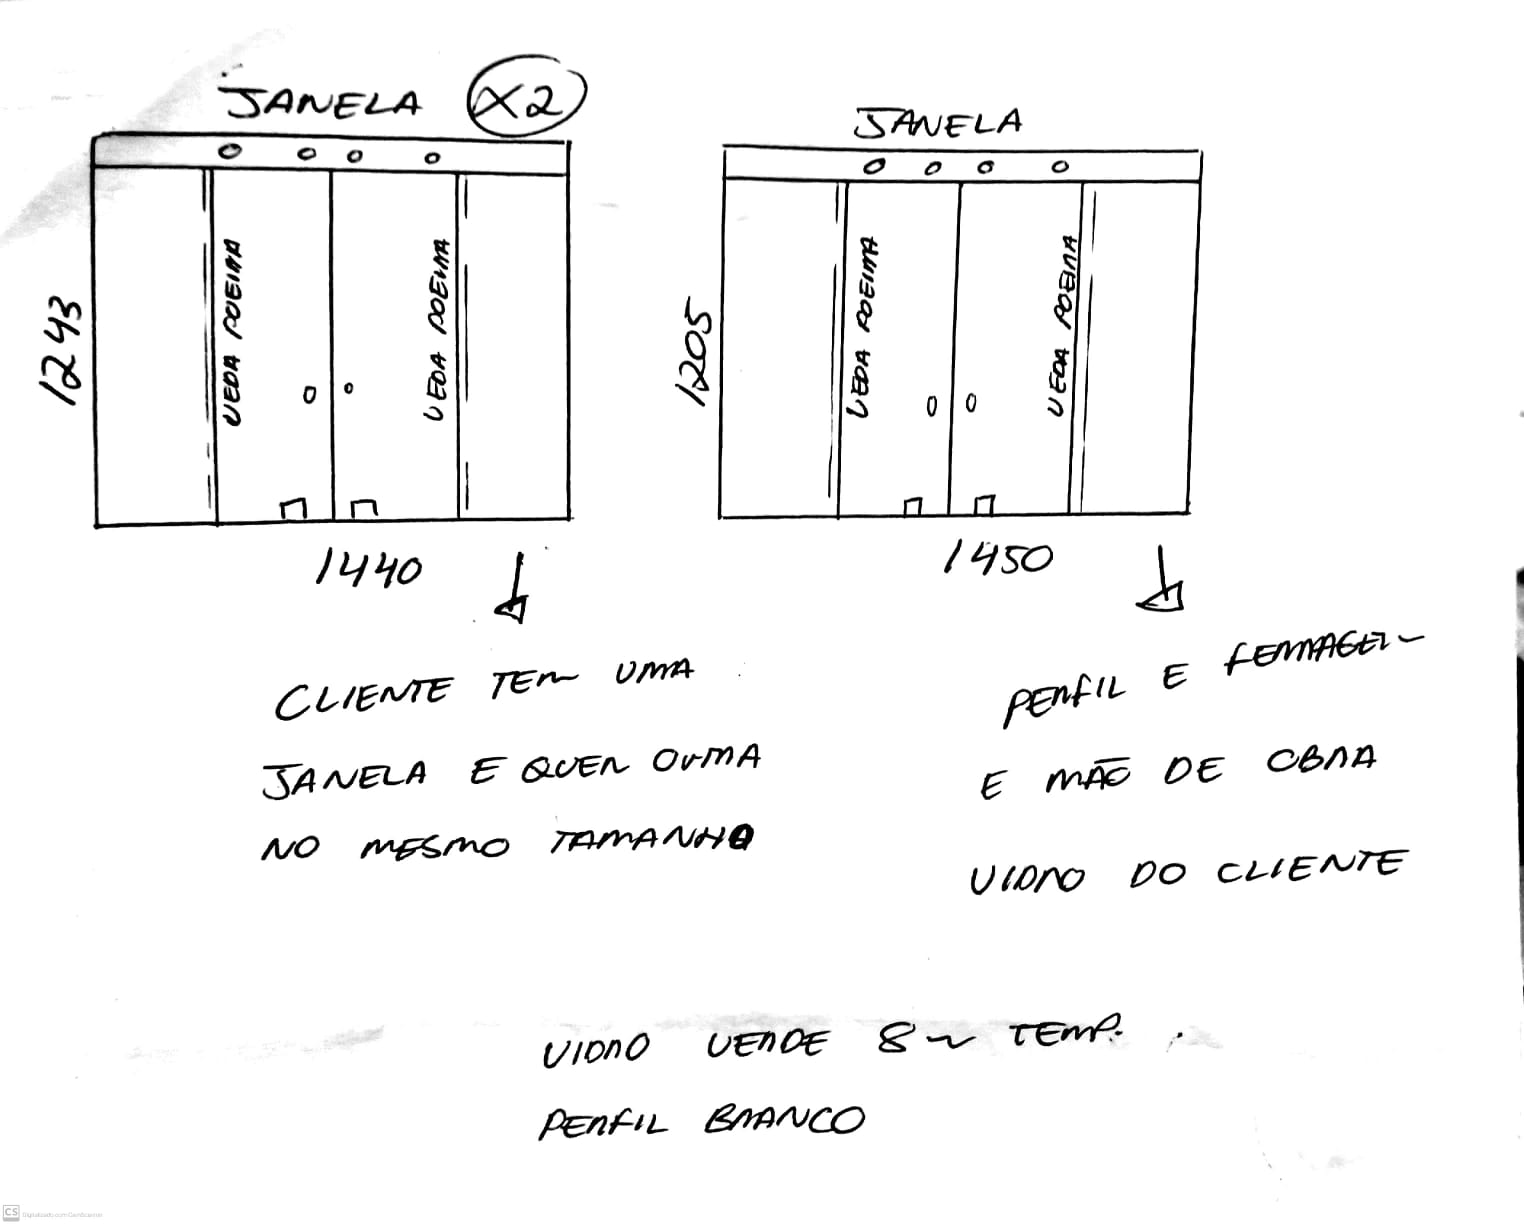 JANELA X2
JANELA
VEDA POEIRA
VEDA POEIRA
VEDA POEIRA
VEDA POEIRA
1243
1205
1440
1450
CLIENTE TEM UMA
JANELA E QUER OUMA
NO MESMO TAMANHO
PERFIL E FERRAGEM
E MÃO DE OBRA
VIDRO DO CLIENTE
VIDRO VERDE 8m TEMP.
PERFIL BRANCO
CS Digitalizado com CamScanner